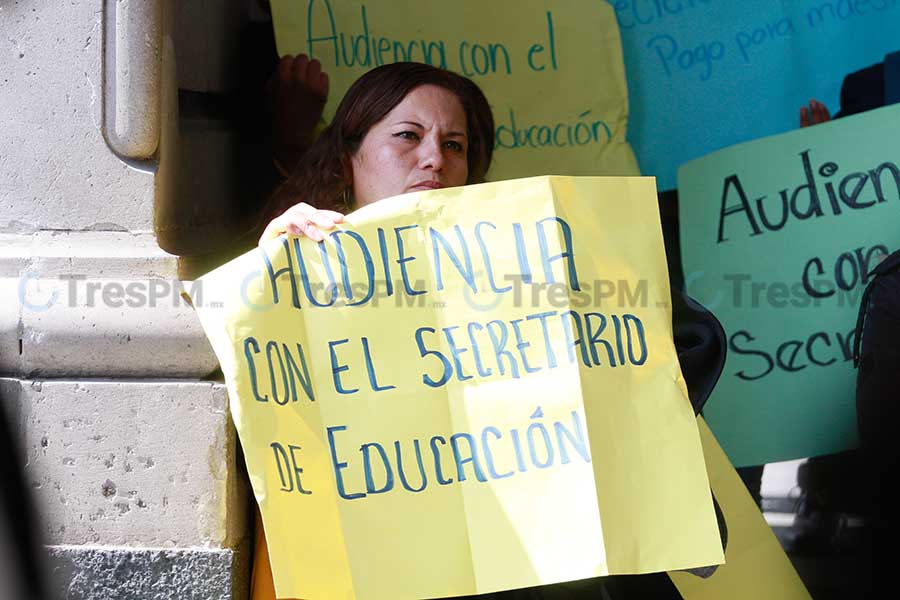 Audiencia con el
educación
Pago para maes
Audien
con
Secre
AUDIENCIA
CON EL SECRETARIO
DE EDUCACIÓN
TresPM.mx TresPM.mx TresPM.mx TresPM